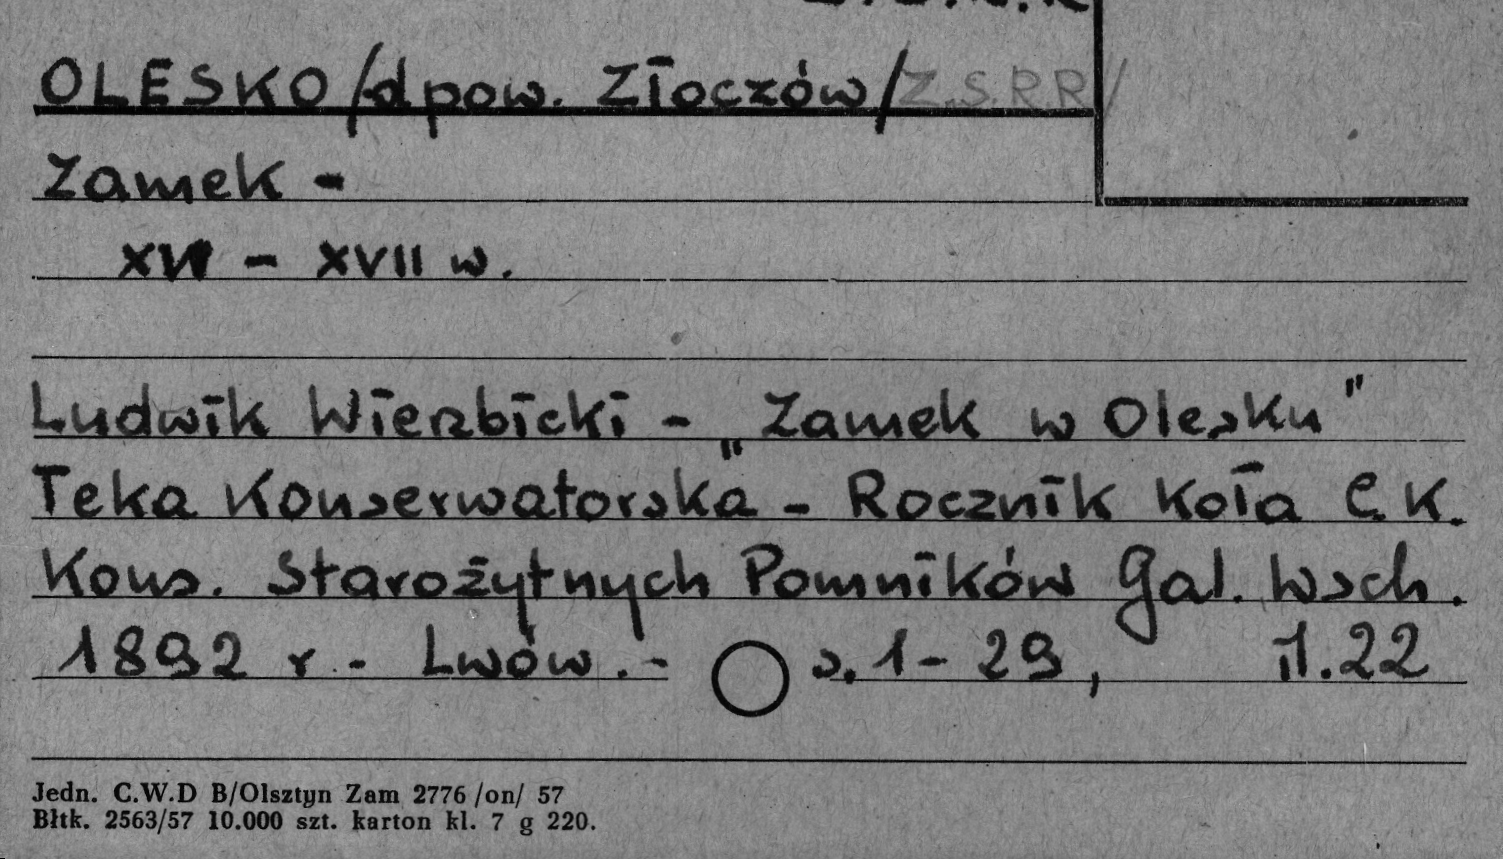 OLESKO /d pow. Złoczów/ Z.S.R.R/
Zamek -
XVI - XVII w.
Ludwik Wierzbicki - "Zamek w Olesku"
Teka Konserwatorska - Rocznik Koła C.K.
Kons. Starożytnych Pomników Gal. Wsch.
1892 r - Lwów. - s. 1 - 29, il. 22
Jedn. C.W.D B/Olsztyn Zam 2776 /on/ 57
Błtk. 2563/57 10.000 szt. karton kl. 7 g 220.